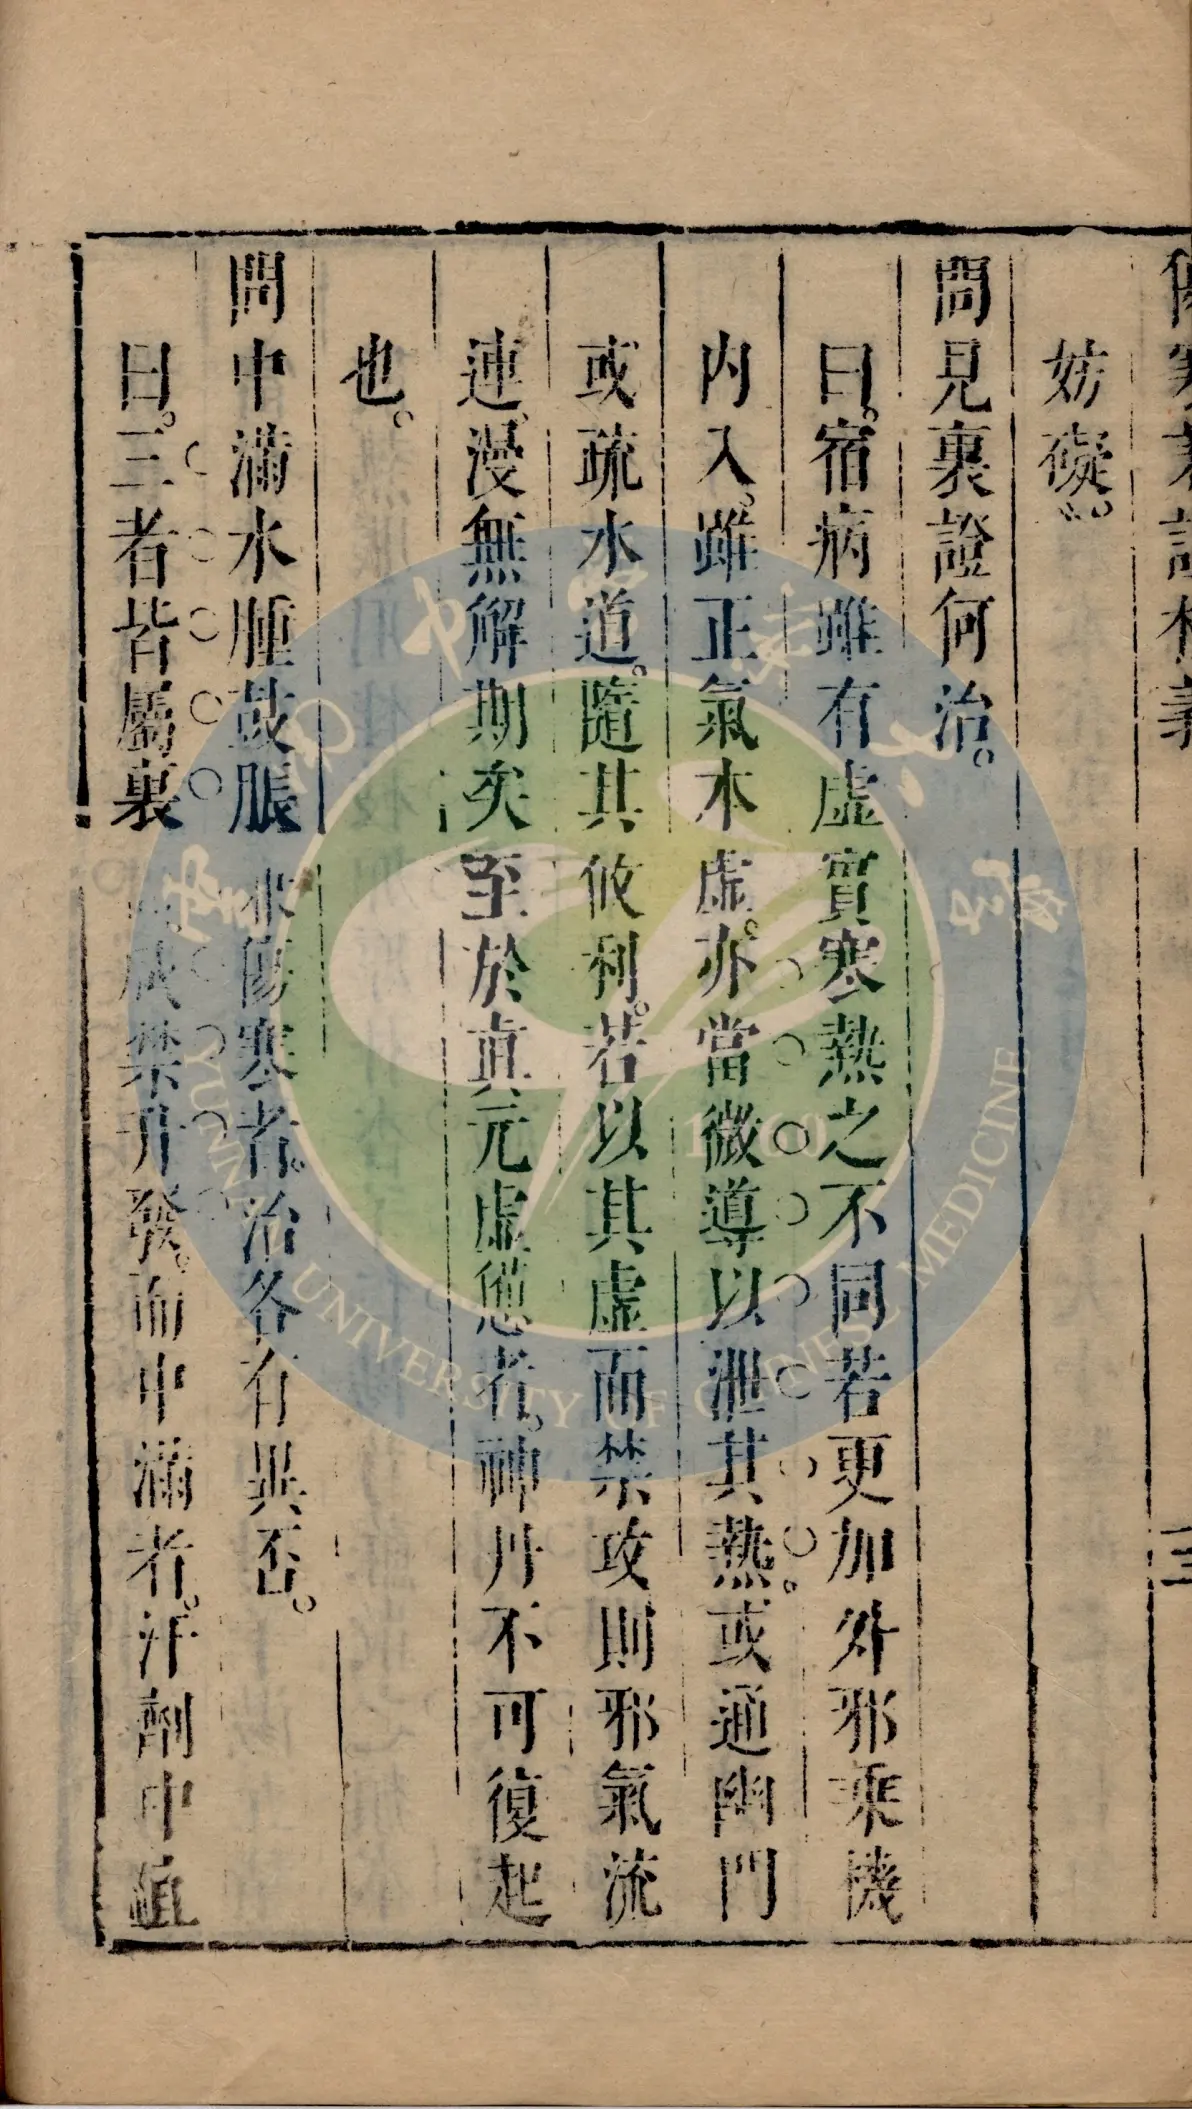 妨礙。
問見裏證何治。
曰。宿病雖有虛實寒熱之不同若更加外邪乘機
內入。雖正氣本虛。亦當微導以泄其熱。或通幽門
或疏水道。隨其攸利。若以其虛而禁攻則邪氣流
連。漫無解期矣至於真元虛憊者。神丹不可復起
也。
問中滿水腫鼓脹 傷寒者。治各有異否。
曰。三者皆屬裏 禁升發。而中滿者。汗劑中
三
UNIVERSITY OF CHINESE MEDICINE